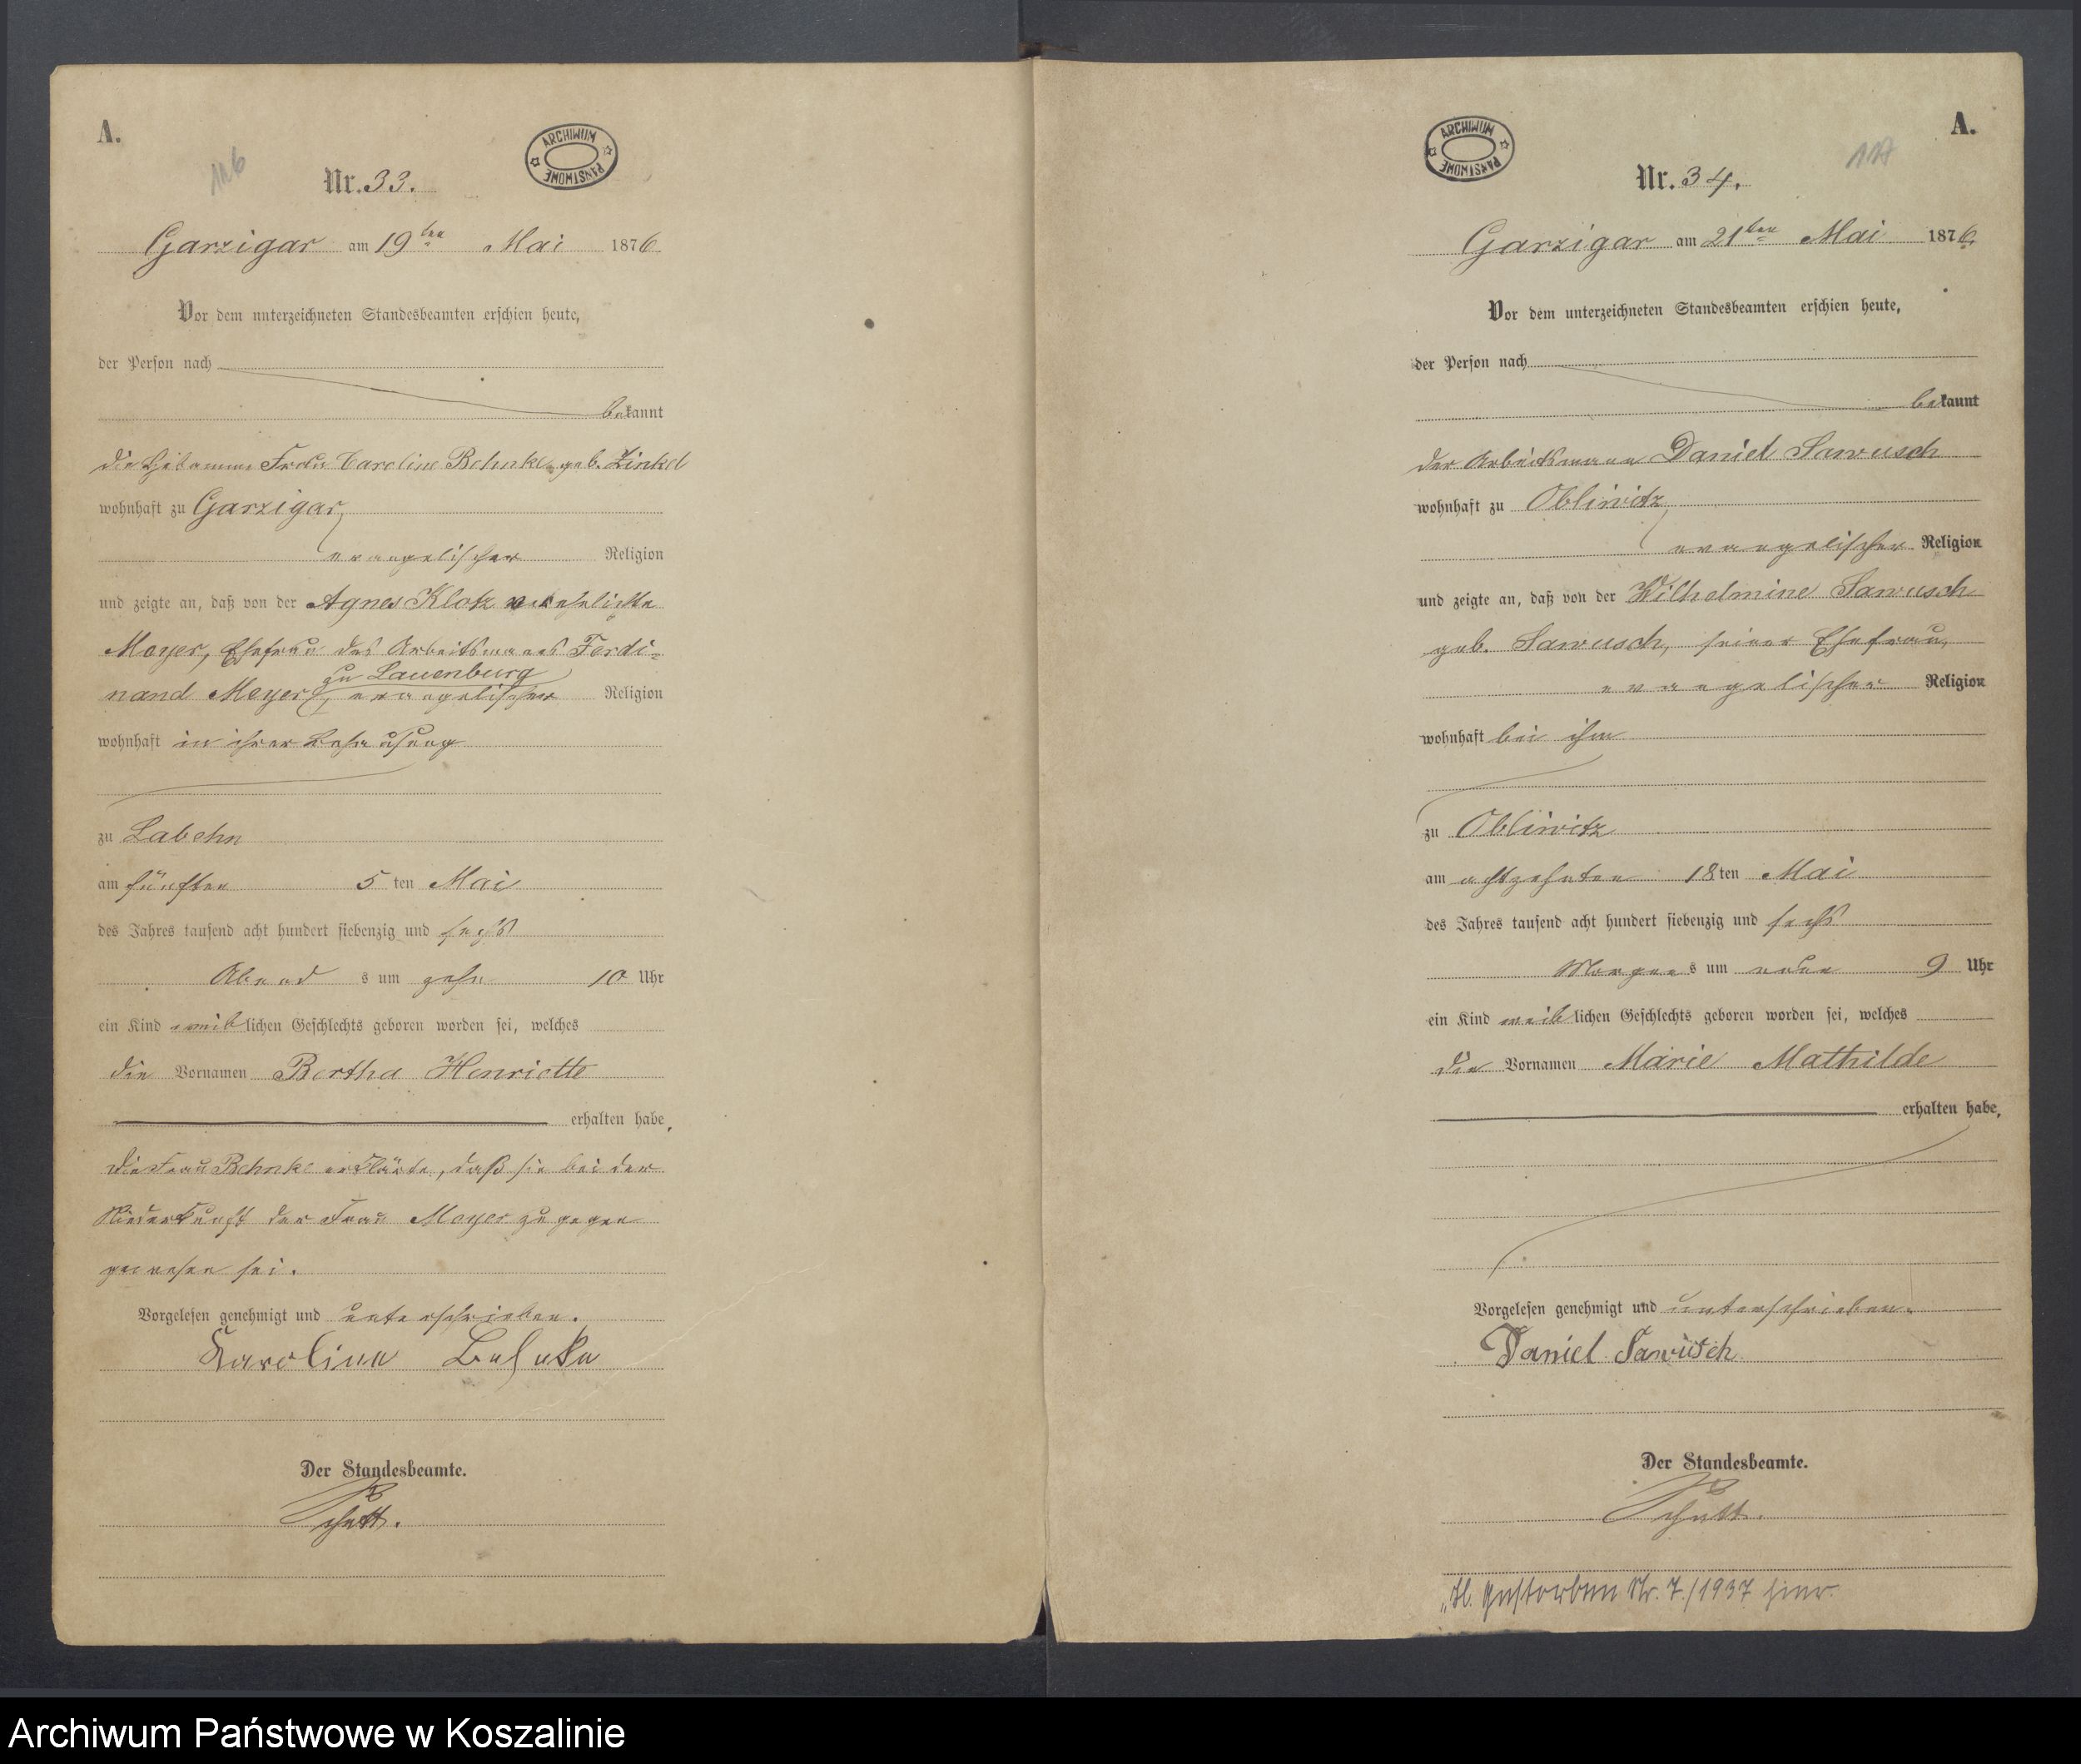 A.
116
Nr. 33.
ARCHIWUM PAŃSTWOWE
Garzigar am 19ten Mai 1876
Vor dem unterzeichneten Standesbeamten erschien heute,
der Person nach
bekannt
die Hebamme Frau Caroline Behnke geb. Zinkel
wohnhaft zu Garzigar,
evangelischer Religion
und zeigte an, daß von der Agnes Klotz verehelichte
Meyer, Ehefrau des Arbeitsmanns Ferdi-
zu Lauenburg
nand Meyer, evangelischer Religion
wohnhaft in ihrer Behausung
zu Labehn
am fünften 5 ten Mai
des Jahres tausend acht hundert siebenzig und sechs
Abend s um zehn 10 Uhr
ein Kind weiblichen Geschlechts geboren worden sei, welches
die Vornamen Bertha Henriette
erhalten habe,
die Frau Behnke erklärte, daß sie bei der
Niederkunft der Frau Meyer zugegen
gewesen sei.
Vorgelesen genehmigt und unterschrieben.
Karoline Behnke
Der Standesbeamte.
A.
117
Nr. 34.
ARCHIWUM PAŃSTWOWE
Garzigar am 21ten Mai 1876
Vor dem unterzeichneten Standesbeamten erschien heute,
der Person nach
bekannt
der Arbeitsmann Daniel Sawusch
wohnhaft zu Obliwitz,
evangelischer Religion
und zeigte an, daß von der Wilhelmine Sawusch
geb. Sawusch, seiner Ehefrau,
evangelischer Religion
wohnhaft bei ihm
zu Obliwitz
am achtzehnten 18 ten Mai
des Jahres tausend acht hundert siebenzig und sechs
Morgens um neun 9 Uhr
ein Kind weiblichen Geschlechts geboren worden sei, welches
die Vornamen Marie Mathilde
erhalten habe,
Vorgelesen genehmigt und unterschrieben.
Daniel Sawusch
Der Standesbeamte.
gestorben Nr. 7./1937 hier.
Archiwum Państwowe w Koszalinie